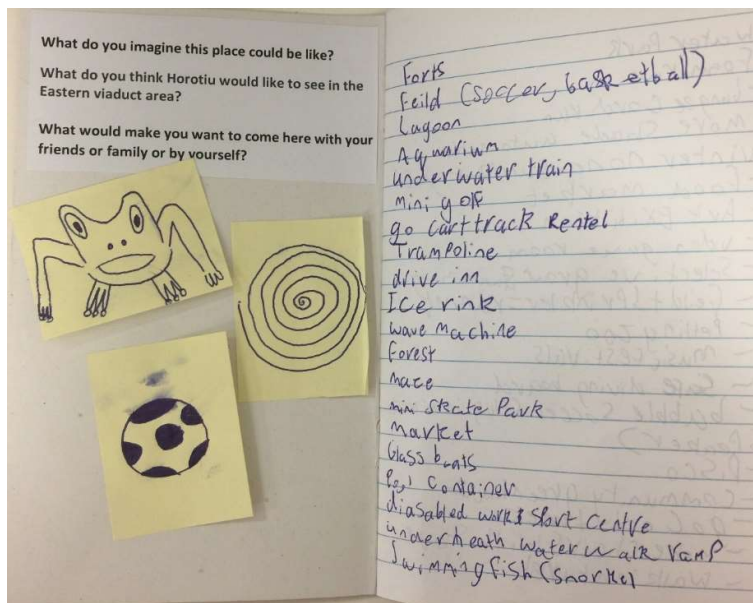 What do you imagine this place could be like?
What do you think Horotiu would like to see in the
Eastern viaduct area?
What would make you want to come here with your
friends or family or by yourself?
Forts
Feild (soccer, basketball)
Lagoon
Aquarium
underwater train
mini golf
go cart track Rentel
Trampoline
drive inn
Ice rink
wave machine
forest
mace
mini skate Park
market
Glass boats
Pool container
diasabled work & sport centre
underneath water walk ramp
Swimming fish (snorkel)